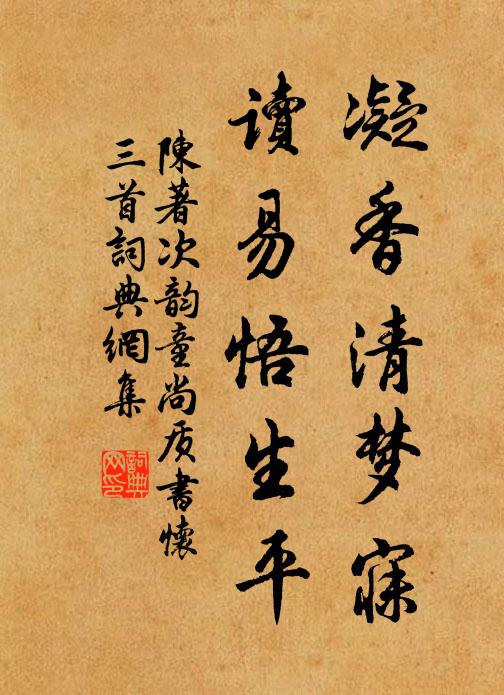 凝香清梦寐
讀易悟生平
陳著次韵童尚质書懷
三首詞典網集
詞典网印